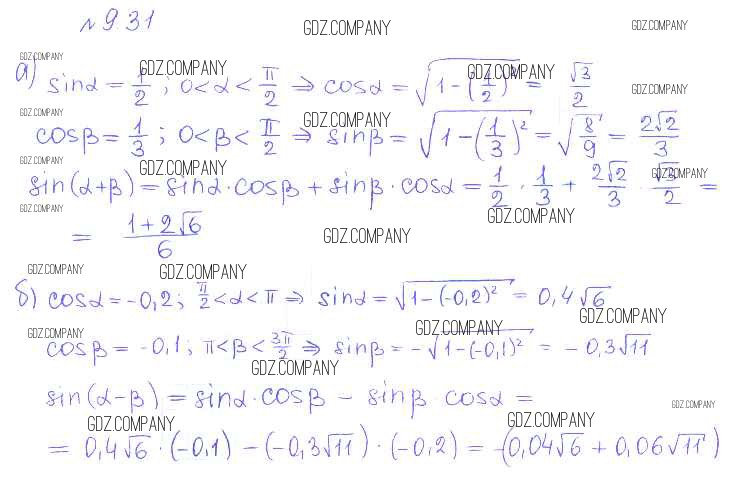 № 9.31
GDZ.COMPANY GDZ.COMPANY
GDZ.COMPANY GDZ.COMPANY GDZ.COMPANY
а) sinα = 1/2 ; 0 < α < π/2 ⇒ cosα = √(1 − (1/2)²) = √3/2
GDZ.COMPANY
GDZ.COMPANY GDZ.COMPANY
cosβ = 1/3 ; 0 < β < π/2 ⇒ sinβ = √(1 − (1/3)²) = √(8/9) = 2√2/3
GDZ.COMPANY GDZ.COMPANY GDZ.COMPANY
sin(α+β) = sinα · cosβ + sinβ · cosα = 1/2 · 1/3 + 2√2/3 · √3/2 =
GDZ.COMPANY GDZ.COMPANY
= (1 + 2√6)/6
GDZ.COMPANY
GDZ.COMPANY GDZ.COMPANY
б) cosα = −0,2 ; π/2 < α < π ⇒ sinα = √(1 − (−0,2)²) = 0,4√6
GDZ.COMPANY
GDZ.COMPANY GDZ.COMPANY
cosβ = −0,1 ; π < β < 3π/2 ⇒ sinβ = −√(1 − (−0,1)²) = −0,3√11
GDZ.COMPANY
sin(α−β) = sinα · cosβ − sinβ · cosα =
GDZ.COMPANY
GDZ.COMPANY GDZ.COMPANY
= 0,4√6 · (−0,1) − (−0,3√11) · (−0,2) = −(0,04√6 + 0,06√11)